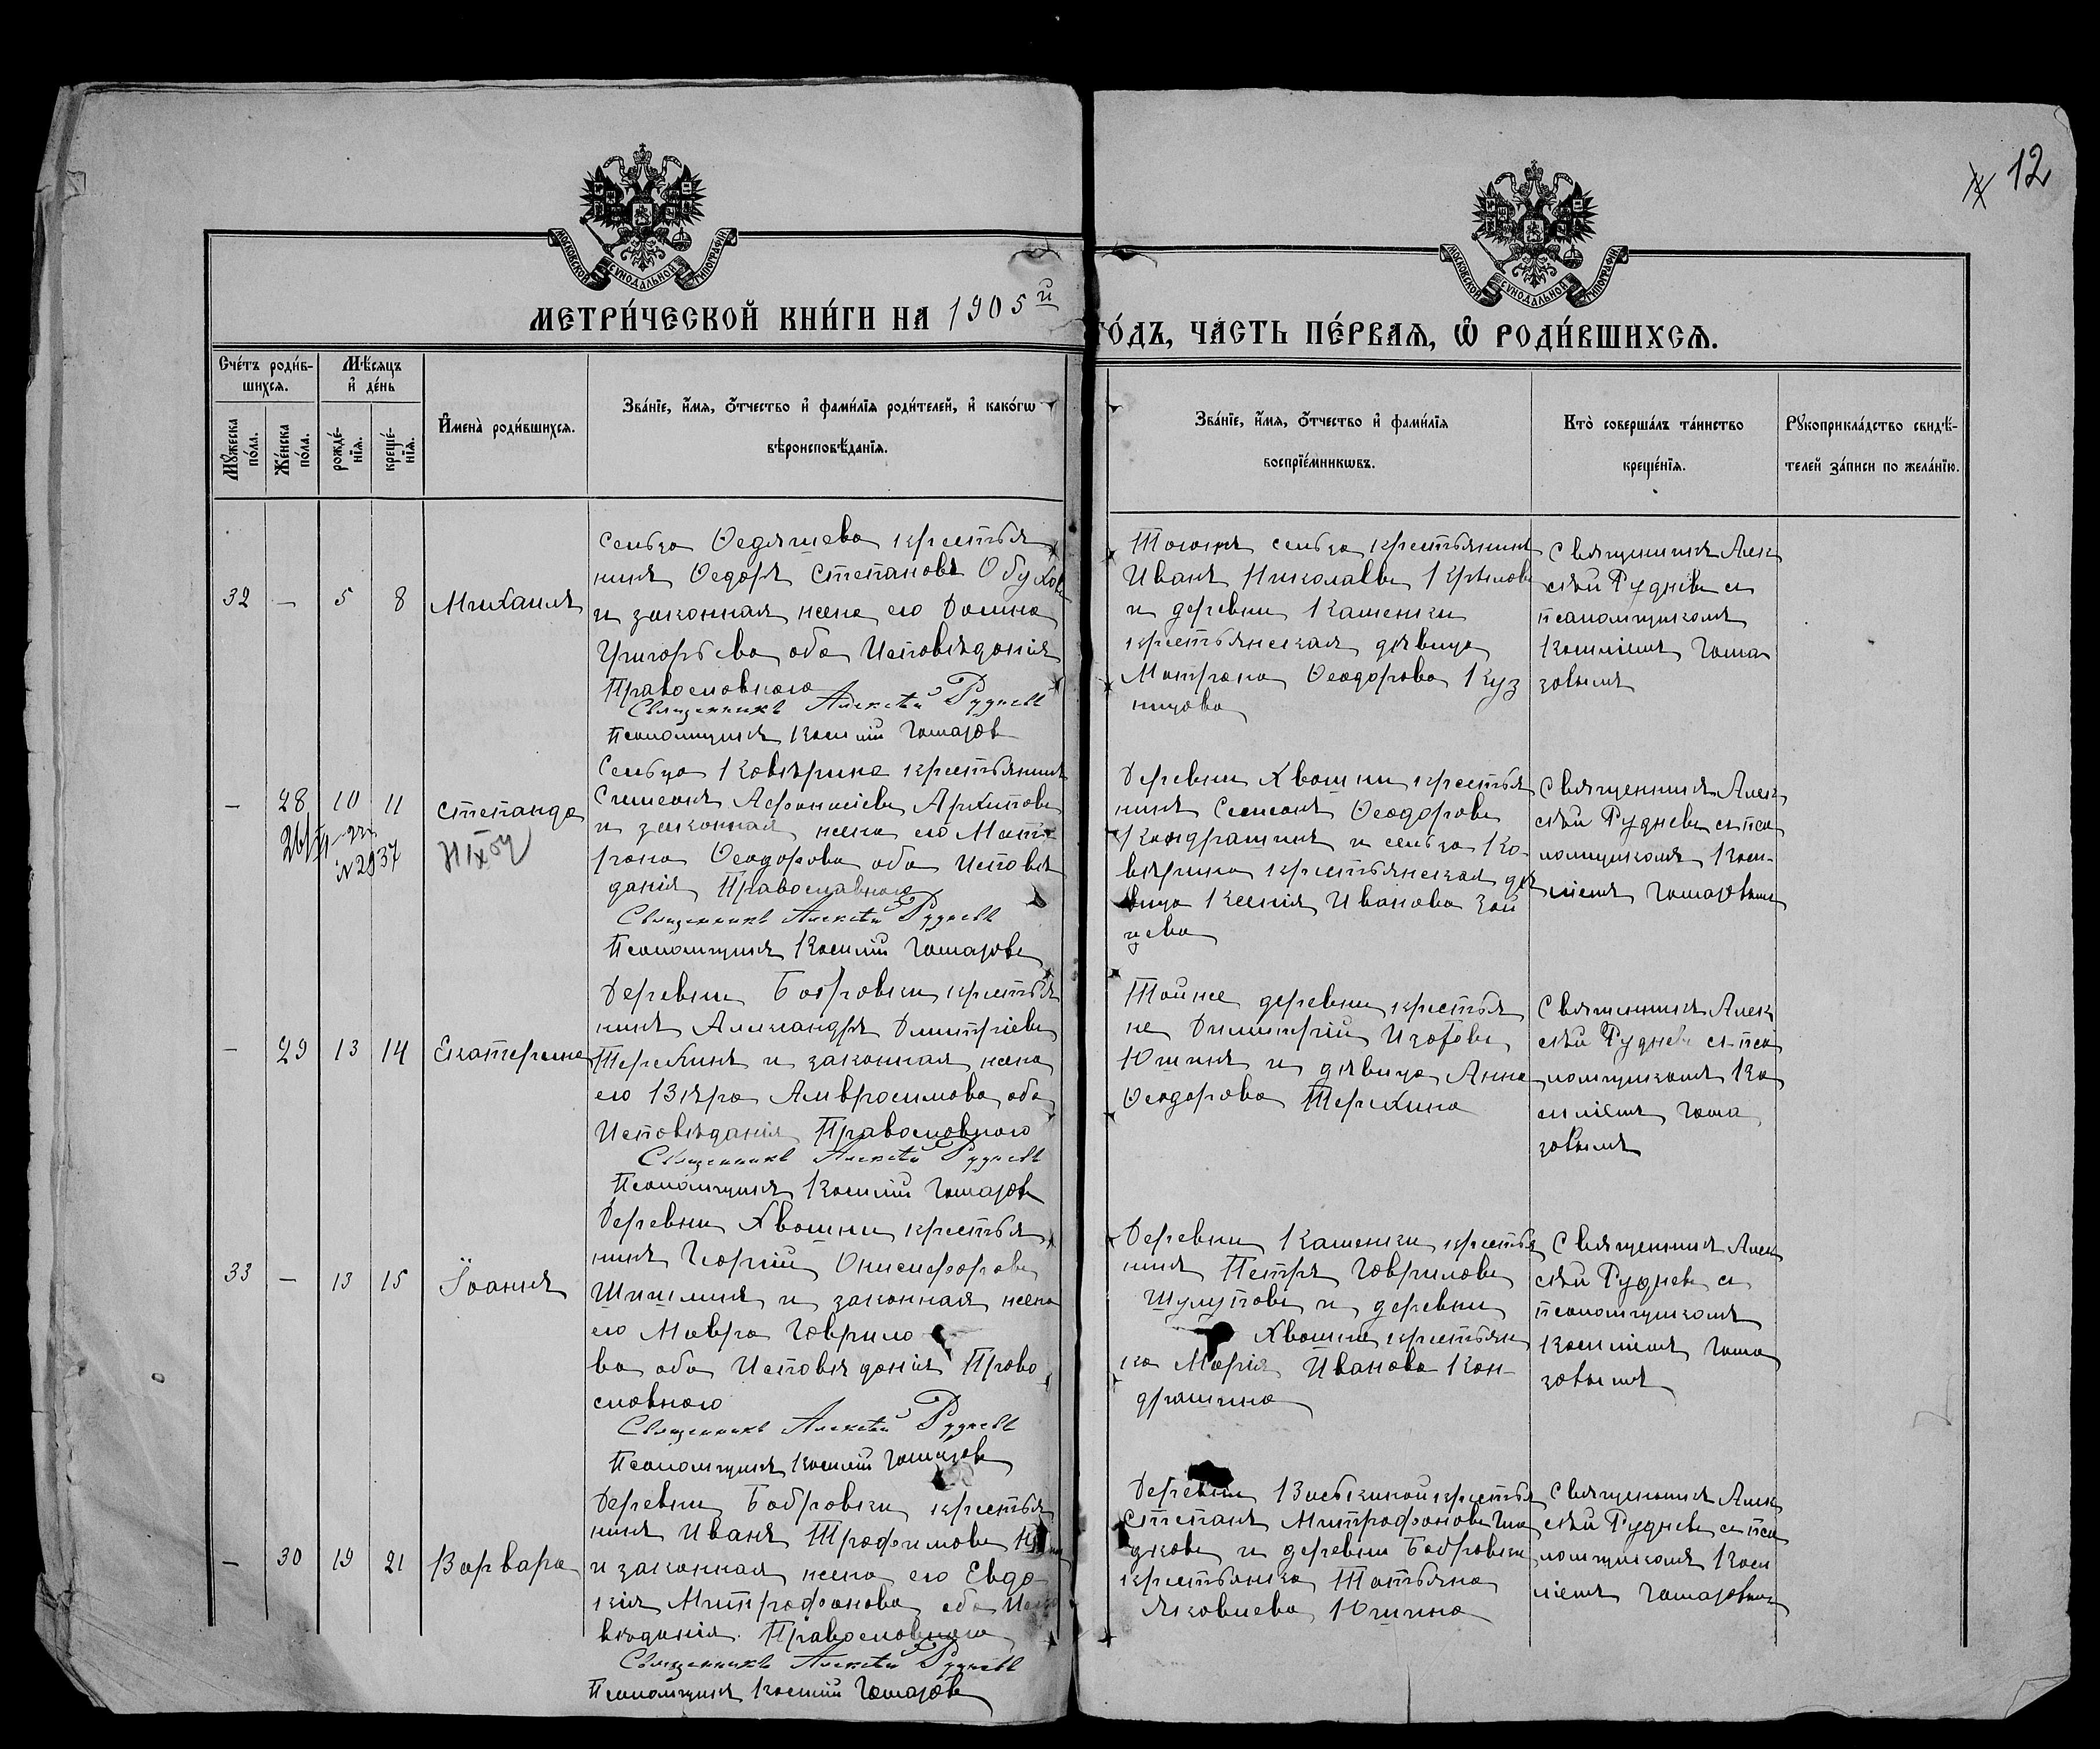 12
МОСКОВСКОЙ СѴНОДАЛЬНОЙ ТИПОГРАФІИ
МОСКОВСКОЙ СѴНОДАЛЬНОЙ ТИПОГРАФІИ
МЕТРИ́ЧЕСКОЙ КНИ́ГИ НА 1905й
ГО́ДЪ, ЧА́СТЬ ПЕ́РВАЯ, Ѿ РОДИ́ВШИХСЯ.
Сче́тъ роди́в-
шихся.
Мѣ́сяцъ
и҆ де́нь
Мꙋ́жеска
по́ла.
Же́нска
по́ла.
рожде́-
нїя.
креще́-
нїя.
И҆мена̀ роди́вшихся.
Зва́нїе, и҆́мя, ѻ҆́тчество и҆ фами́лїя роди́телей, и҆ како́гѡ
вѣроисповѣ́данїя.
Зва́нїе, и҆́мя, ѻ҆́тчество и҆ фами́лїя
воспрїе́мникѡвъ.
Кто̀ соверша́лъ та́инство
креще́нїя.
Рꙋкоприкла́дство свидѣ́-
телей за́писи по жела́нїю.
32 — 5 8 Михаилъ
сельца Ѳедяшева крестья
нинъ Ѳедоръ Степановъ Обухов
и законная жена его Домна
Григорьева оба Исповѣданія
Православнаго
Священникъ Алексѣй Рудневъ
Псаломщикъ Василій Гамазов
Тогоже сельца крестьянинъ
Иванъ Николаевъ Крыловъ
и деревни Каменки
крестьянская дѣвица
Матрона Ѳеодорова Куз
нецова
Священникъ Алек
сѣй Рудневъ съ
псаломщикомъ
Василіемъ Гама
зовымъ
— 28 10 11 Степанида
№ 2937
Сельца Ковѣрина крестьянинъ
Симеонъ Афанасіевъ Архиповъ
и законная жена его Мат
рона Ѳеодорова оба Исповѣ
данія Православнаго
Священникъ Алексѣй Рудневъ
Псаломщикъ Василій Гамазовъ
Деревни Хвошни крестья
нинъ Симеонъ Ѳеодоровъ
Кондрашинъ и сельца Ко-
вѣрина крестьянская дѣ
вица Ксенія Иванова Зай
цева
Священникъ Алек
сѣй Рудневъ съ пса
ломщикомъ Васи-
ліемъ Гамазовымъ
— 29 13 14 Екатерина
Деревни Бобровки крестья
нинъ Александръ Димитріевъ
Терехинъ и законная жена
его Вѣра Амвросимова оба
Исповѣданія Православнаго
Священникъ Алексѣй Рудневъ
Псаломщикъ Василій Гамазовъ
Тойже деревни крестья
не Димитрій Изотовъ
Юшинъ и дѣвица Анна
Ѳеодорова Терехина
Священникъ Алек
сѣй Рудневъ съ пса
ломщикомъ Ва
силіемъ Гама
зовымъ
33 — 13 15 Іоаннъ
Деревни Хвошни крестья
нинъ Георгій Онисифоровъ
Шишлинъ и законная жена
его Мавра Гаврило
ва оба Исповѣданія Право
славнаго
Священникъ Алексѣй Рудневъ
Псаломщикъ Василій Гамазовъ
Деревни Каменки крестья
нинъ Петръ Гавриловъ
Шулуповъ и деревни
Хвошни крестьян
ка Марія Иванова Кон-
драшина
Священникъ Алек
сѣй Рудневъ съ
псаломщикомъ
Василіемъ Гама
зовымъ
— 30 19 21 Варвара
Деревни Бобровки крестья
нинъ Иванъ Трофимовъ
и законная жена его Евдо
кія Митрофанова оба Испо
вѣданія Православнаго
Священникъ Алексѣй Рудневъ
Псаломщикъ Василій Гамазовъ
Деревни Васькиной крестья
Степанъ Митрофановъ Гла
дковъ и деревни Бобровки
крестьянка Татьяна
Яковлева Юшина
Священникъ Алек
сѣй Рудневъ съ пса
ломщикомъ Васи
ліемъ Гамазовымъ